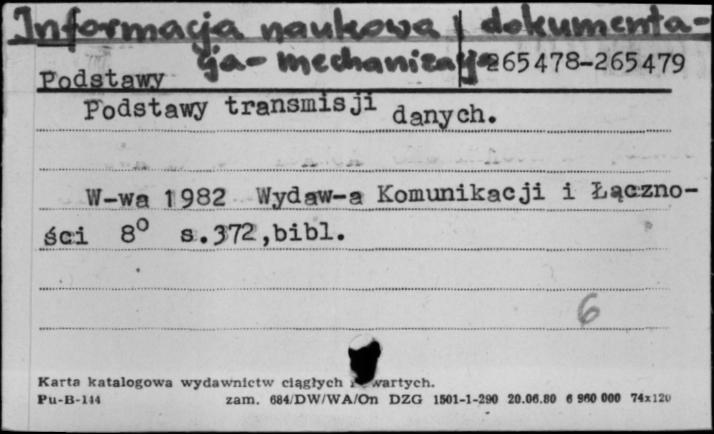 Informacja naukowa i dokumenta-
cja - mechanizacja 265478-265479
Podstawy
Podstawy transmisji danych.
W-wa 1982 Wydaw-a Komunikacji i Łączno-
ści 8° s.372,bibl.
6
Karta katalogowa wydawnictw ciągłych i zwartych.
Pu-B-144 zam. 684/DW/WA/On DZG 1501-1-290 20.06.80 6 960 000 74x120